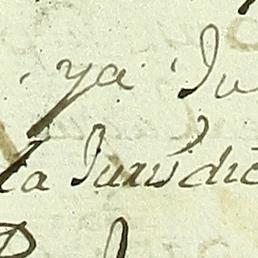 ya Ju
la Jurisdic